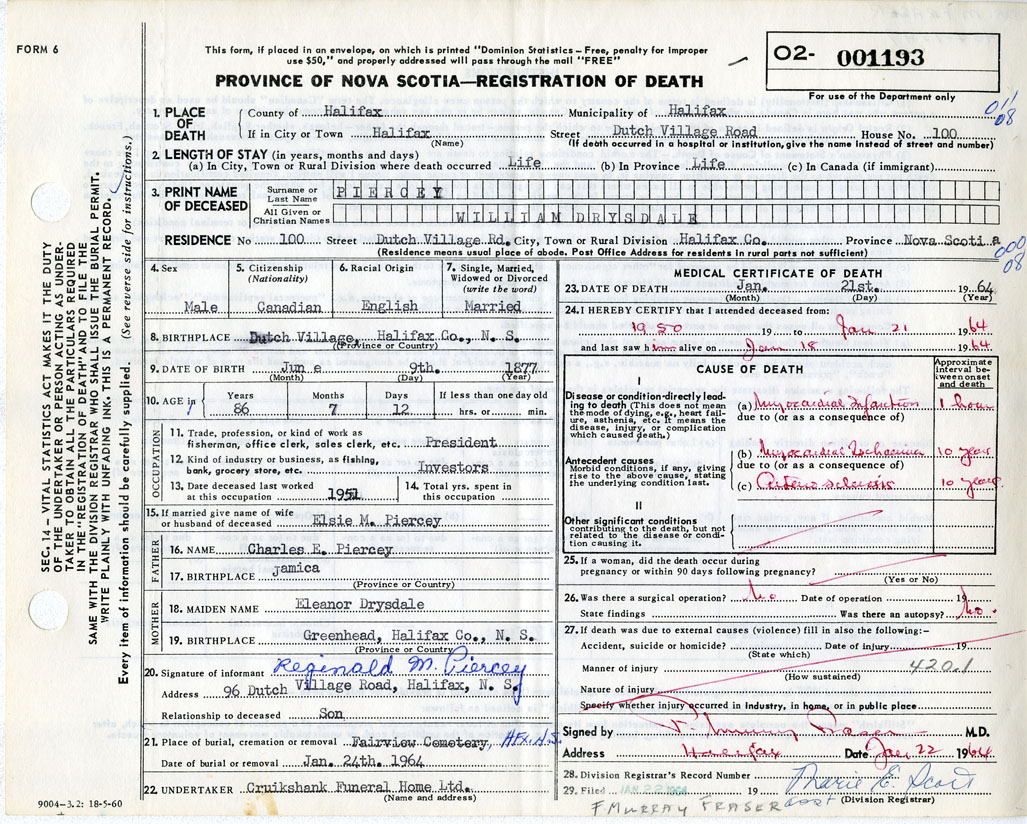 FORM 6
This form, if placed in an envelope, on which is printed "Dominion Statistics – Free, penalty for improper
use $50," and properly addressed will pass through the mail "FREE"
PROVINCE OF NOVA SCOTIA—REGISTRATION OF DEATH
O2- 001193
For use of the Department only
011
08
1. PLACE OF DEATH
County of Halifax Municipality of Halifax
If in City or Town Halifax Street Dutch Village Road House No. 100
(Name) (If death occurred in a hospital or institution, give the name instead of street and number)
2. LENGTH OF STAY (in years, months and days)
(a) In City, Town or Rural Division where death occurred Life (b) In Province Life (c) In Canada (if immigrant)
3. PRINT NAME OF DECEASED
Surname or Last Name PIERCEY
All Given or Christian Names WILLIAM DRYSDALE
RESIDENCE No 100 Street Dutch Village Rd. City, Town or Rural Division Halifax Co. Province Nova Scotia
(Residence means usual place of abode. Post Office Address for residents in rural parts not sufficient)
000
08
4. Sex
Male
5. Citizenship
(Nationality)
Canadian
6. Racial Origin
English
7. Single, Married,
Widowed or Divorced
(write the word)
Married
8. BIRTHPLACE Dutch Village, Halifax Co., N. S.
(Province or Country)
9. DATE OF BIRTH June 9th. 1877
(Month) (Day) (Year)
10. AGE in
Years Months Days If less than one day old
86 7 12 hrs. or min.
OCCUPATION
11. Trade, profession, or kind of work as
fisherman, office clerk, sales clerk, etc. President
12. Kind of industry or business, as fishing,
bank, grocery store, etc. Investors
13. Date deceased last worked
at this occupation 1951
14. Total yrs. spent in
this occupation
15. If married give name of wife
or husband of deceased Elsie M. Piercey
FATHER
16. NAME Charles E. Piercey
17. BIRTHPLACE Jamica
(Province or Country)
MOTHER
18. MAIDEN NAME Eleanor Drysdale
19. BIRTHPLACE Greenhead, Halifax Co., N. S.
(Province or Country)
20. Signature of informant Reginald M. Piercey
Address 96 Dutch Village Road, Halifax, N. S.
Relationship to deceased Son
21. Place of burial, cremation or removal Fairview Cemetery, Hfx. N.S.
Date of burial or removal Jan. 24th. 1964
22. UNDERTAKER Cruikshank Funeral Home Ltd.
(Name and address)
MEDICAL CERTIFICATE OF DEATH
23. DATE OF DEATH Jan. 21st. 1964
(Month) (Day) (Year)
24. I HEREBY CERTIFY that I attended deceased from:
1950 19 to Jan 21 1964
and last saw him alive on Jan 18 1964
CAUSE OF DEATH
Approximate
interval be-
tween onset
and death
I
Disease or condition directly lead-
ing to death (This does not mean
the mode of dying, e.g., heart fail-
ure, asthenia, etc. It means the
disease, injury, or complication
which caused death.)
(a) Myocardial Infarction 1 hour
due to (or as a consequence of)
Antecedent causes
Morbid conditions, if any, giving
rise to the above cause, stating
the underlying condition last.
(b) Myocardial Ischaemia 10 year
due to (or as a consequence of)
(c) Arteriosclerosis 10 years
II
Other significant conditions
contributing to the death, but not
related to the disease or condi-
tion causing it.
25. If a woman, did the death occur during
pregnancy or within 90 days following pregnancy?
(Yes or No)
26. Was there a surgical operation? No Date of operation 19
State findings Was there an autopsy? No.
27. If death was due to external causes (violence) fill in also the following:–
Accident, suicide or homicide? Date of injury 19
(State which)
Manner of injury 420.1
(How sustained)
Nature of injury
Specify whether injury occurred in Industry, in home, or in public place
Signed by F. Murray Fraser M.D.
Address Halifax Date Jan 22 1964
28. Division Registrar's Record Number
29. Filed JAN 22 1964 19 Marie E. Scott
asst (Division Registrar)
F. MURRAY FRASER
9004–3.2: 18-5-60
SEC. 14 – VITAL STATISTICS ACT MAKES IT THE DUTY
OF THE UNDERTAKER OR PERSON ACTING AS UNDER-
TAKER TO OBTAIN ALL THE PARTICULARS REQUIRED
IN THE "REGISTRATION OF DEATH" AND TO FILE THE
SAME WITH THE DIVISION REGISTRAR WHO SHALL ISSUE THE BURIAL PERMIT.
WRITE PLAINLY WITH UNFADING INK. THIS IS A PERMANENT RECORD.
Every item of information should be carefully supplied. (See reverse side for instructions.)